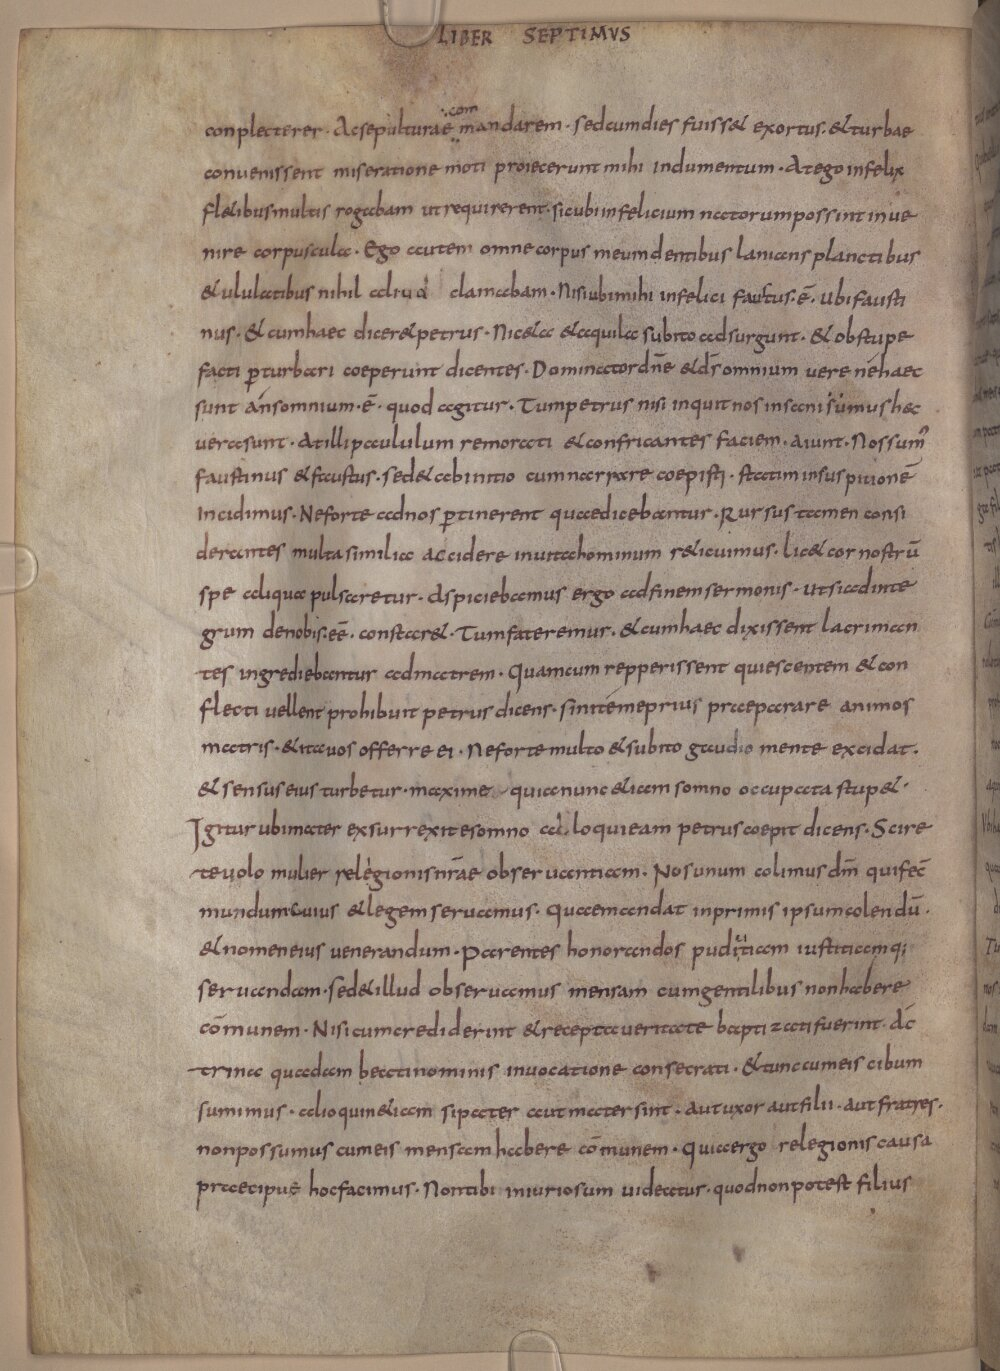 LIBER SEPTIMVS
com
conplecterer · Ac sepulturae mandarem · sed cum dies fuisset exortus · & turbae
conuenissent miseratione moti proiecerunt mihi indumentum · At ego infelix
fletibus multis rogabam ut requirerent · sicubi infelicium natorum possint inue
nire corpuscula · Ego autem omne corpus meum dentibus lanians planctibus
& ululatibus nihil aliud clamabam · Nisi ubi mihi infelici faustus · ē · ubi fausti
nus · & cum haec diceret petrus · Niceta & aquila subito adsurgunt · & obstupe
facti ꝑturbari coeperunt dicentes · Dominator dn̄e & d̄s omnium uere né haec
sunt án somnium · ē · quod agitur · Tum petrus nisi inquit nos insani sumus hac
uera sunt · At illi paululum remorati & confricantes faciem · aiunt · Nos sum᾽
faustinus & faustus · sed & ab initio cum narrare coepisti · statim in suspitionē
incidimus · Ne forte ad nos ꝑtinerent quae dicebantur · Rursus tamen consi
derantes multa similia accidere in uita hominum reticuimus · licet cor nostrū
spe aliqua pulsaretur · Aspiciebamus ergo ad finem sermonis · ut si ad inte
grum de nobis · eē · constaret · Tum fateremur · & cum haec dixissent lacriman
tes ingrediebantur ad matrem · Quam cum repperissent quiescentem & con
flecti uellent prohibuit petrus dicens · sinite me prius praeparare animos
matris · & ita uos offerre ei · Ne forte multo & subito gaudio mente excidat ·
& sensus eius turbetur · maxime quia nunc etiam somno occupata stupet ·
Igitur ubi mater exsurrexit e somno adloqui eam petrus coepit dicens · Scire
te uolo mulier relegionis nr̄ae obseruantiam · Nos unum colimus dm̄ qui fec̄
mundum cuius & legem seruamus · Quae mandat in primis ipsum colendū ·
& nomen eius uenerandum · Parentes honorandos pudicitiam iustitiamq;
seruandam · sed & illud obseruamus mensam cum gentilibus non habere
cōmunem · Nisi cum crediderint & recepta ueritate baptizati fuerint · Ac
trina quadam beati nominis inuocatione consecrati · & tunc cum eis cibum
sumimus · alioquin etiam si pater aut mater sint · aut uxor aut filii · aut fratres ·
non possumus cum eis mensam habere cōmunem · Quia ergo relegionis causa
praecipue hoc facimus · Non tibi iniuriosum uideatur · quod non potest filius